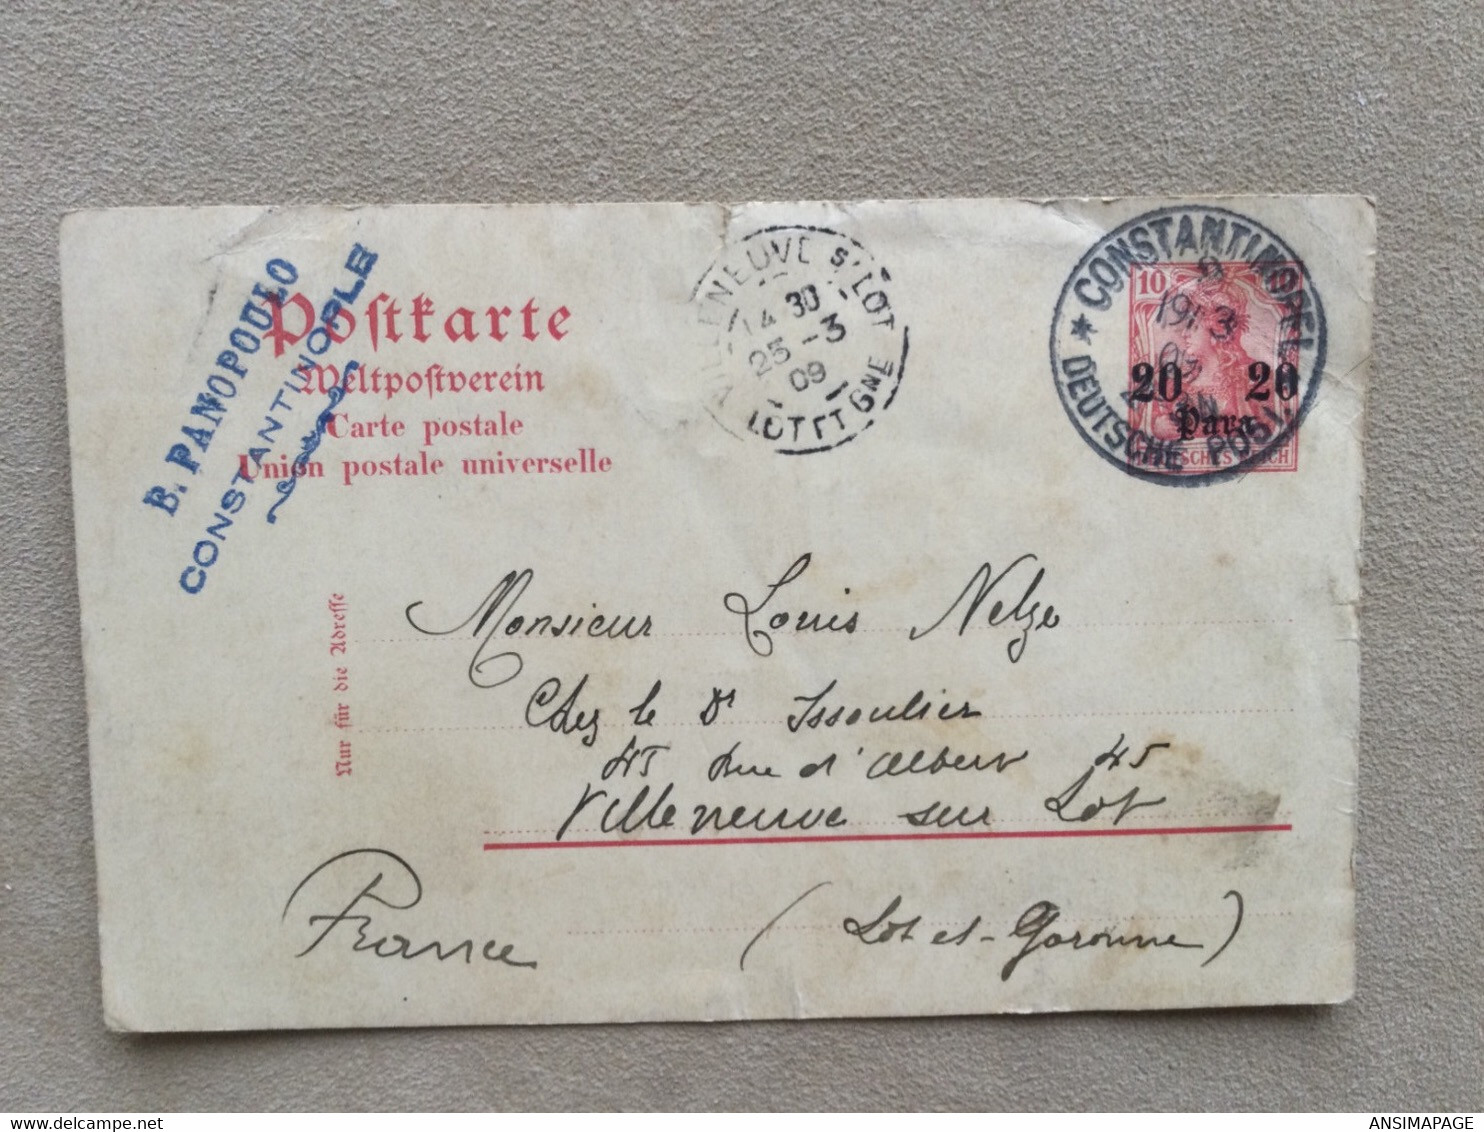 B. PANOPOULO
CONSTANTINOPLE
Postkarte
Weltpostverein
Carte postale
Union postale universelle
VILLENEUVE S' LOT
14 30
25 - 3
09
LOT ET GNE
CONSTANTINOPEL
19 3
09
★ DEUTSCHE POST
10
20 20
Para
DEUTSCHES REICH
Nur für die Adresse
Monsieur Louis Nelze
Chez le Dr Issoulier
45 Rue d'Albert 45
Villeneuve sur Lot
France (Lot et-Garonne)
ANSIMAPAGE